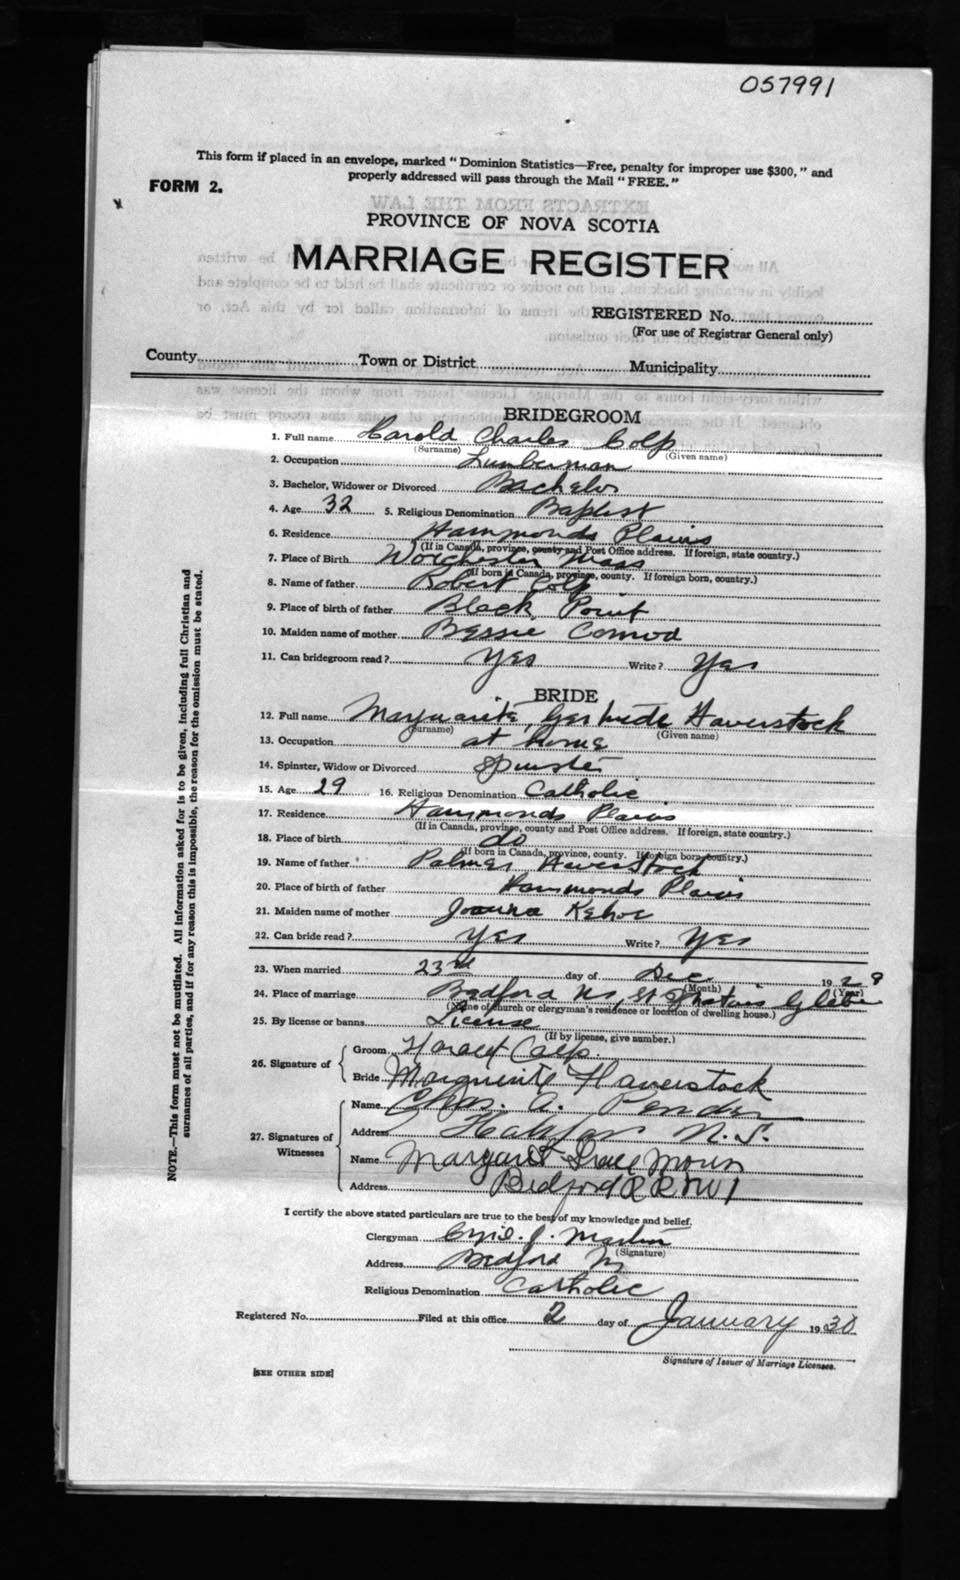 057991
This form if placed in an envelope, marked " Dominion Statistics—Free, penalty for improper use $300, " and
properly addressed will pass through the Mail "FREE."
FORM 2.
PROVINCE OF NOVA SCOTIA
MARRIAGE REGISTER
REGISTERED No.
(For use of Registrar General only)
County Town or District Municipality
BRIDEGROOM
1. Full name Harold Charles Colp
(Surname) (Given name)
2. Occupation Lumberman
3. Bachelor, Widower or Divorced Bachelor
4. Age 32 5. Religious Denomination Baptist
6. Residence Hammonds Plains
(If in Canada, province, county and Post Office address. If foreign, state country.)
7. Place of Birth Worchester Mass
(If born in Canada, province, county. If foreign born, country.)
8. Name of father Robert Colp
9. Place of birth of father Black Point
10. Maiden name of mother Bessie Conrod
11. Can bridegroom read? Yes Write? Yes
BRIDE
12. Full name Marguerite Gertrude Haverstock
(Surname) (Given name)
13. Occupation at home
14. Spinster, Widow or Divorced Spinster
15. Age 29 16. Religious Denomination Catholic
17. Residence Hammonds Plains
(If in Canada, province, county and Post Office address. If foreign, state country.)
18. Place of birth do
(If born in Canada, province, county. If foreign born, country.)
19. Name of father Palmer Haverstock
20. Place of birth of father Hammonds Plains
21. Maiden name of mother Joanna Kehoe
22. Can bride read? Yes Write? Yes
23. When married 23rd day of Dec 1929
(Month) (Year)
24. Place of marriage Bedford NS, St Glebe
(Name of church or clergyman's residence or location of dwelling house.)
25. By license or banns License
(If by license, give number.)
26. Signature of
Groom Harold Colp.
Bride Marguerite Haverstock
27. Signatures of Witnesses
Name Chas. A. Pender
Address Halifax N.S.
Name Margaret Grace
Address Bedford R R No 1
I certify the above stated particulars are true to the best of my knowledge and belief.
Clergyman Cyril J. Martin
(Signature)
Address Bedford NS
Religious Denomination Catholic
Registered No. Filed at this office 2 day of January 1930
Signature of Issuer of Marriage Licenses.
[SEE OTHER SIDE]
NOTE.—This form must not be mutilated. All information asked for is to be given, including full Christian and
surnames of all parties, and if for any reason this is impossible, the reason for the omission must be stated.